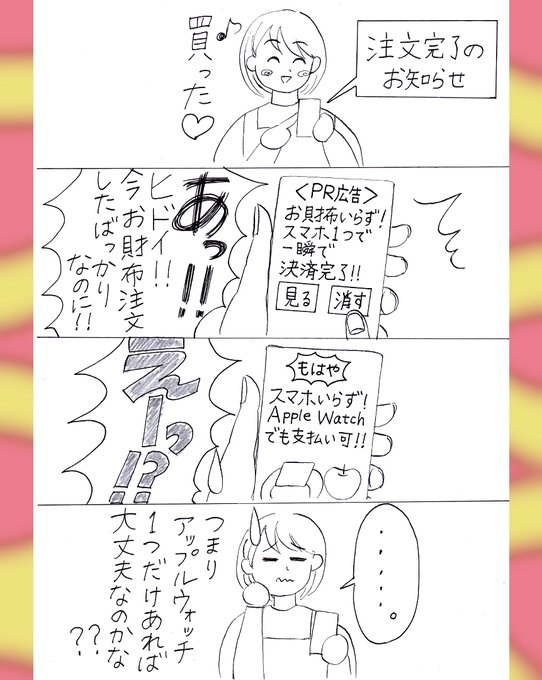 注文完了の
お知らせ
買った♡
<PR広告>
お財布いらず!
スマホ1つで
一瞬で
決済完了!!
見る 消す
あっ!!
ヒドイ!!
今お財布注文
したばっかり
なのに!!
もはや
スマホいらず!
Apple Watch
でも支払い可!!
えーっ!?!!
・・・・・・。
つまり
アップルウォッチ
1つだけあれば
大丈夫なのかな
??